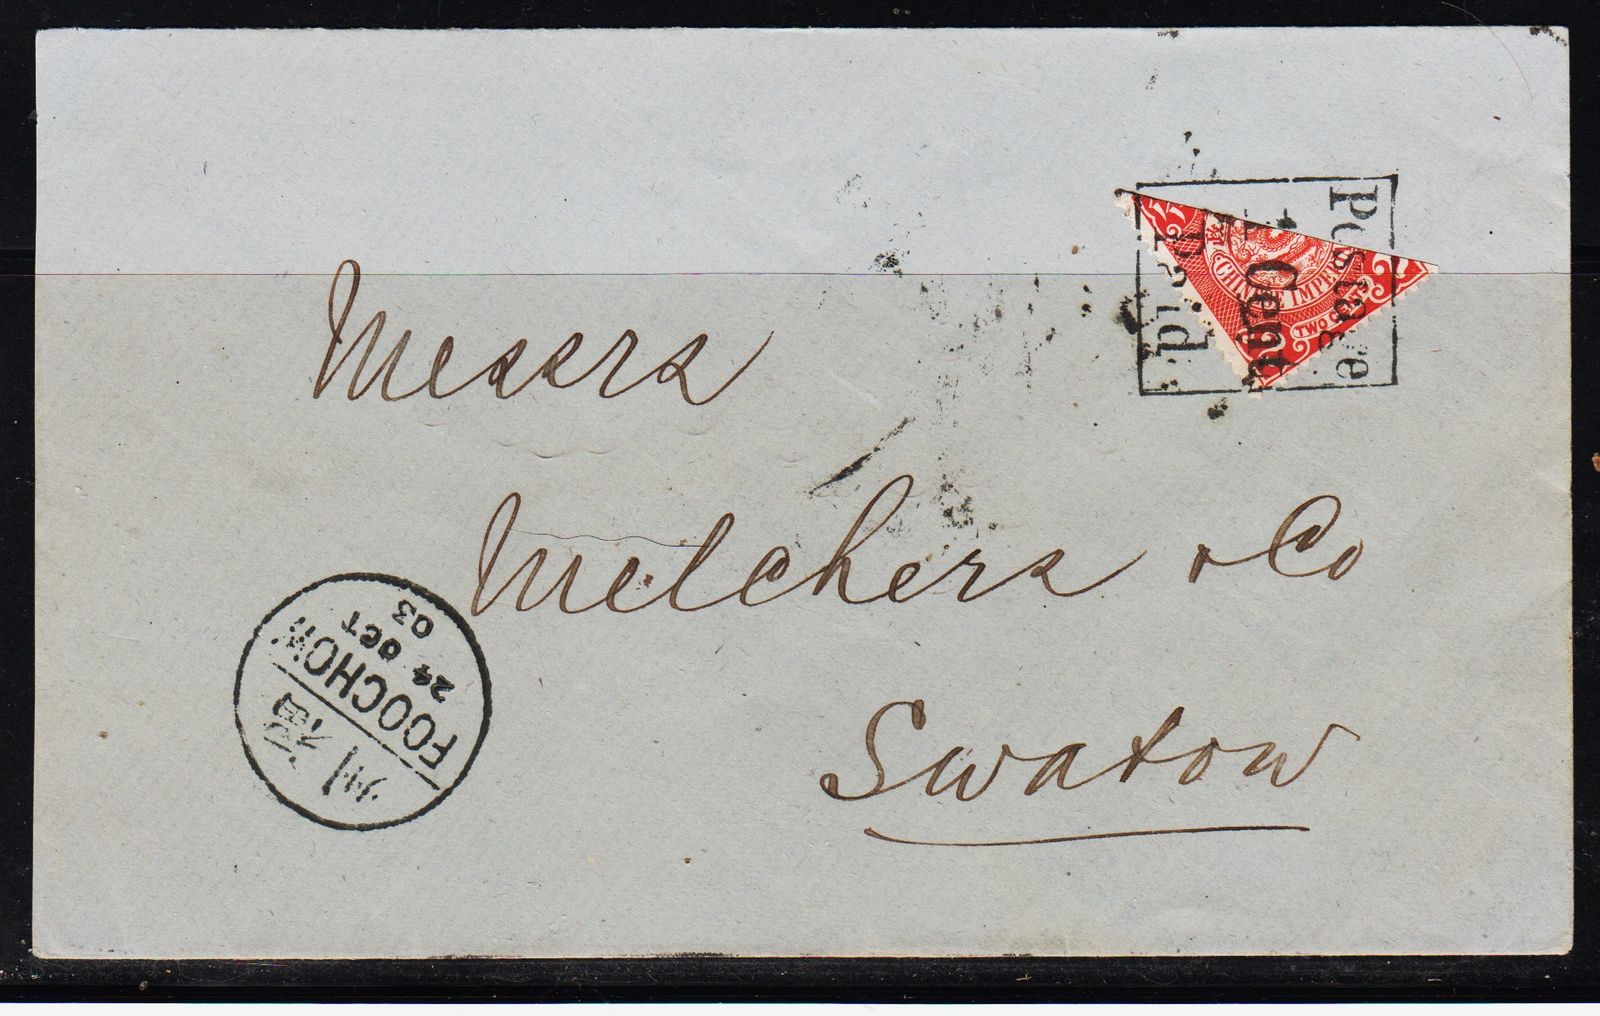 Postage
1 Cent
Paid.
CHINESE IMPE
TWO CENTS
2
2
Messrs
Melchers & Co
Swatow
福州
FOOCHOW
24 OCT
03